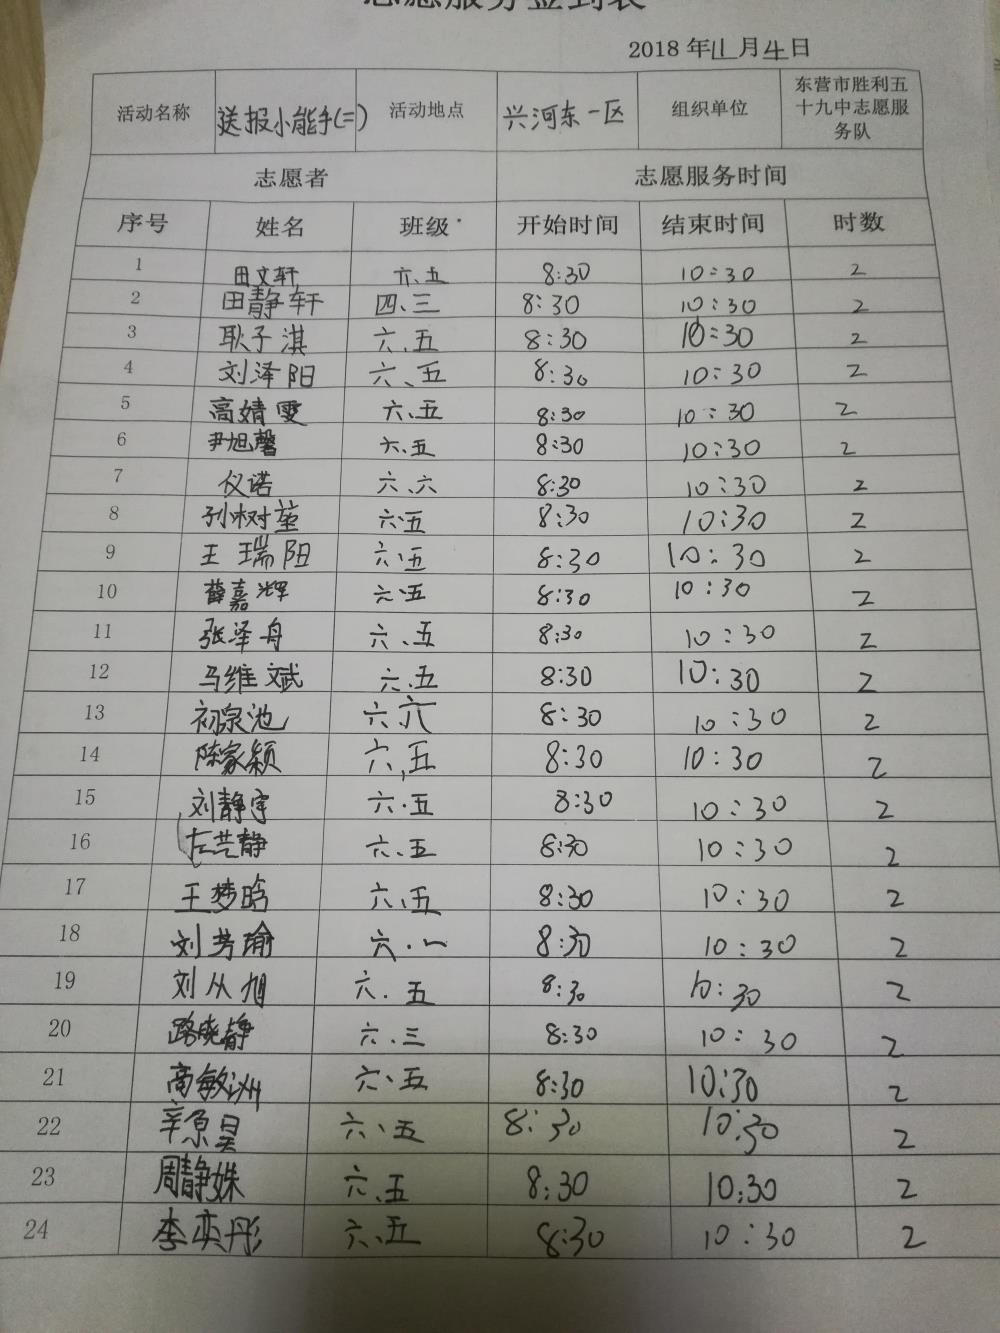 志愿服务签到表
2018 年 11 月 4 日
活动名称 送报小能手(二) 活动地点 兴河东一区 组织单位 东营市胜利五十九中志愿服务队
志愿者 志愿服务时间
序号 姓名 班级 开始时间 结束时间 时数
1 田文轩 六.五 8:30 10:30 2
2 田静轩 四.三 8:30 10:30 2
3 耿子淇 六.五 8:30 10:30 2
4 刘泽阳 六、五 8:30 10:30 2
5 高婧雯 六.五 8:30 10:30 2
6 尹旭馨 六.五 8:30 10:30 2
7 仪诺 六.六 8:30 10:30 2
8 孙树堃 六.五 8:30 10:30 2
9 王瑞阳 六.五 8:30 10:30 2
10 薛嘉辉 六.五 8:30 10:30 2
11 张泽舟 六、五 8:30 10:30 2
12 马维斌 六.五 8:30 10:30 2
13 初泉池 六.六 8:30 10:30 2
14 陈家颖 六,五 8:30 10:30 2
15 刘静宇 六.五 8:30 10:30 2
16 左芸静 六、五 8:30 10:30 2
17 王梦晗 六、五 8:30 10:30 2
18 刘芳瑜 六.一 8:30 10:30 2
19 刘从旭 六.五 8:30 10:30 2
20 路晓静 六.三 8:30 10:30 2
21 高敏洲 六、五 8:30 10:30 2
22 辛原昊 六、五 8:30 10:30 2
23 周静姝 六、五 8:30 10:30 2
24 李奕彤 六、五 8:30 10:30 2